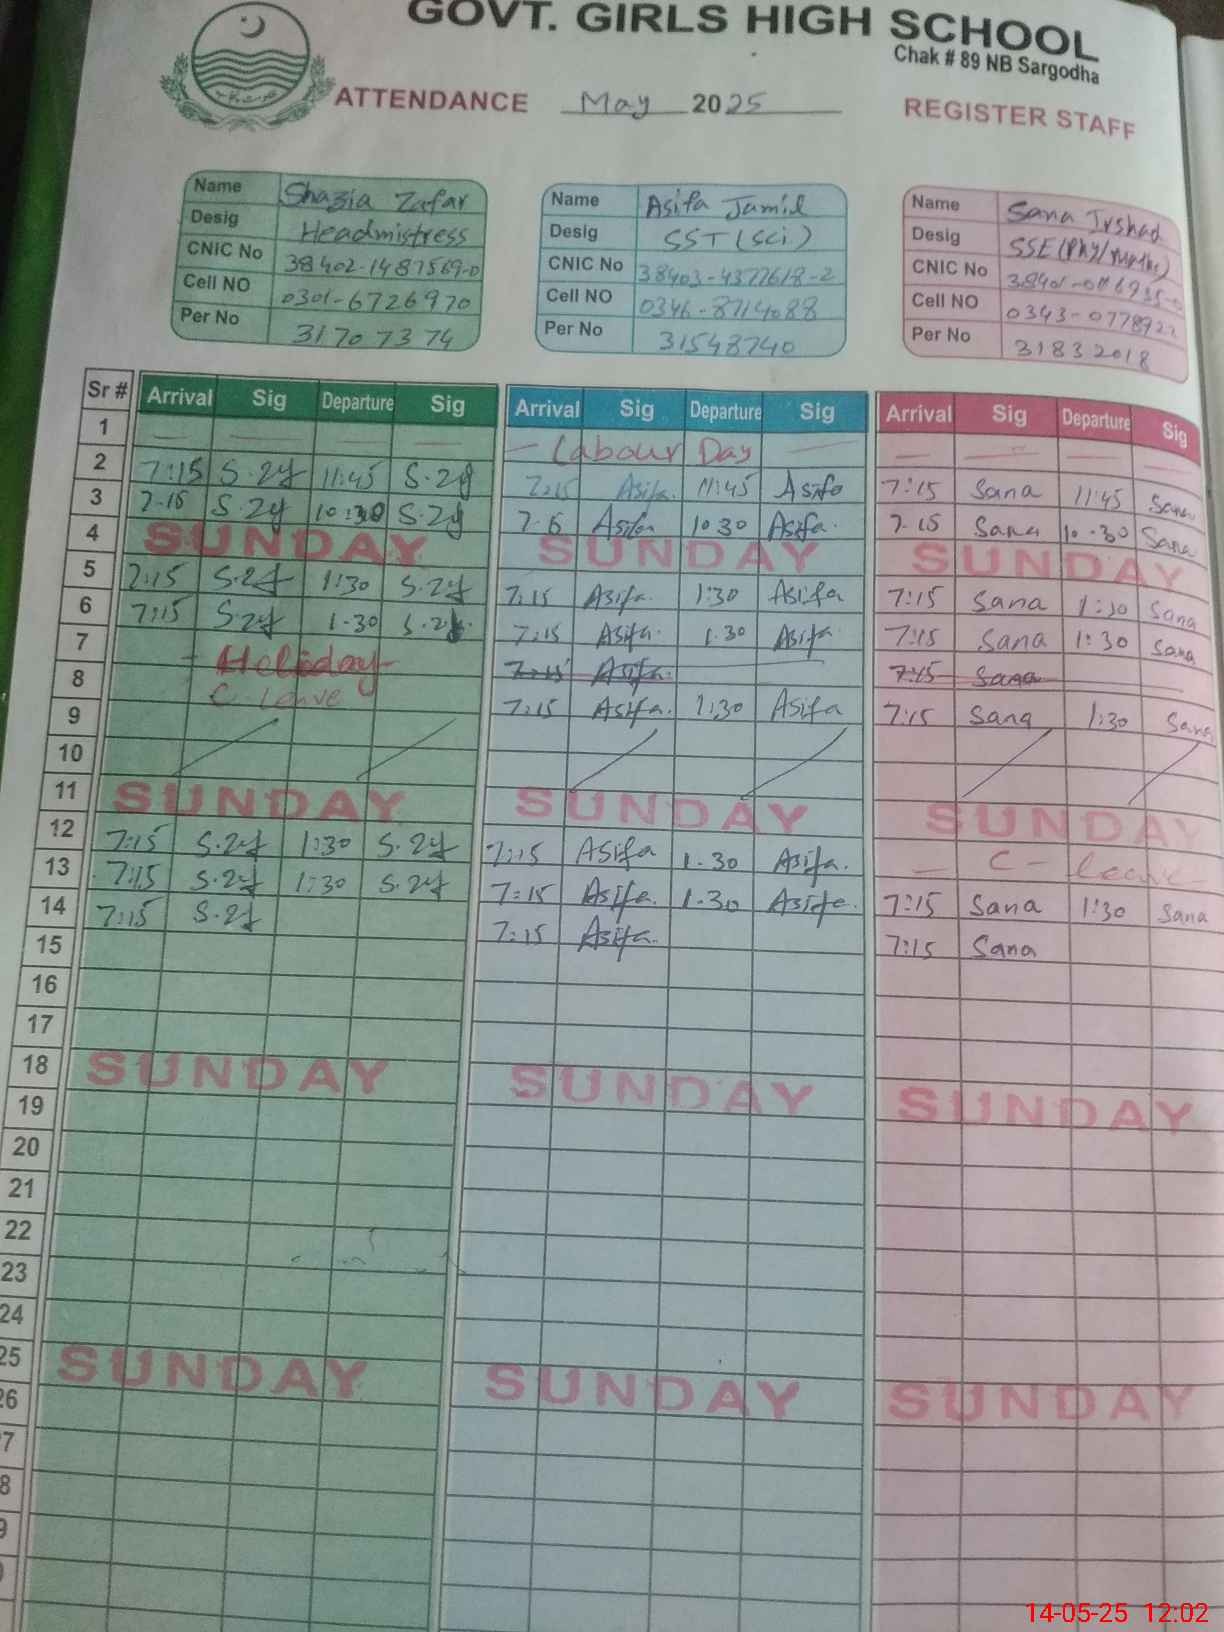 GOVT. GIRLS HIGH SCHOOL
Chak # 89 NB Sargodha
ATTENDANCE May 2025 REGISTER STAFF
Name Shazia Zafar Name Asifa Jamil Name Sana Irshad
Desig Headmistress Desig SST (Sci) Desig SSE (Phy/Maths)
CNIC No 38402-1487569-0 CNIC No 38403-4377618-2 CNIC No
Cell NO 0301-6726970 Cell NO 0346-8714088 Cell NO 0343-0778922
Per No 31707374 Per No 31548740 Per No 31832018
Sr # Arrival Sig Departure Sig Arrival Sig Departure Sig Arrival Sig Departure Sig
1 — — — — — Labour Day — — — — —
2 7:15 S.Zf 11:45 S.Zf 7:15 Asifa. 11:45 Asifa 7:15 Sana 11:45 Sana
3 7.15 S.Zf 10:30 S.Zf Asifa 10 30 Asifa. 7.15 Sana 10.30 Sana
4 SUNDAY SUNDAY SUNDAY
5 7:15 S.Zf 1:30 S.Zf 7:15 Asifa. 1:30 Asifa 7:15 Sana 1:30 Sana
6 7:15 S.Zf 1.30 S.Zf. 7:15 Asifa. 1.30 Asifa. 7:15 Sana 1:30 Sana
7 - Holiday - 7:15 Asifa. 7:15 Sana
8 C Leave 7:15 Asifa. 1:30 Asifa 7:15 Sana 1:30 Sana
9
10
11 SUNDAY SUNDAY SUNDAY
12 7:15 S.Zf 1:30 S.Zf 7:15 Asifa 1.30 Asifa. — C - leave
13 7:15 S.Zf 1:30 S.Zf 7:15 Asifa. 1.30 Asifa. 7:15 Sana 1:30 Sana
14 7:15 S.Zf 7:15 Asifa. 7:15 Sana
15
16
17
18 SUNDAY SUNDAY SUNDAY
19
20
21
22
23
24
25 SUNDAY SUNDAY SUNDAY
26
7
8
9
14-05-25 12:02